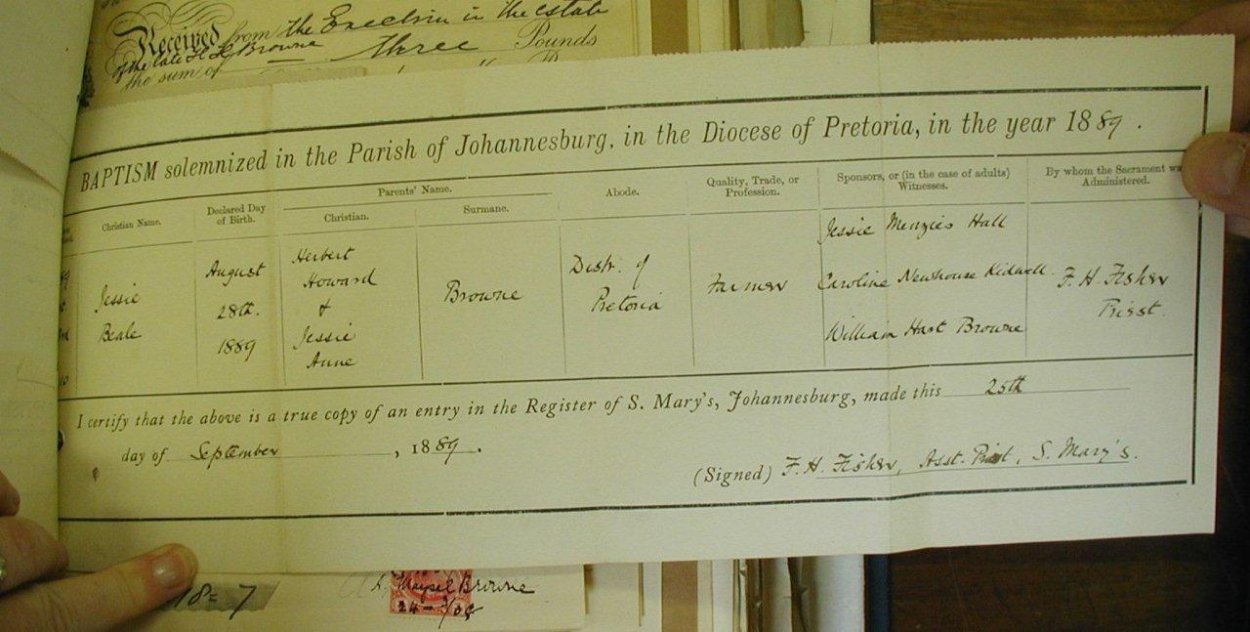 Received from the Executrix in the estate
of the late H H Browne three Pounds
the sum of
BAPTISM solemnized in the Parish of Johannesburg, in the Diocese of Pretoria, in the year 1889.
Christian Name.
Declared Day
of Birth.
Parents' Name.
Christian.
Surmane.
Abode.
Quality, Trade, or
Profession.
Sponsors, or (in the case of adults)
Witnesses.
By whom the Sacrament was
Administered.
Jessie
Beale
August
28th.
1889
Herbert
Howard
&
Jessie
Anne
Browne
Distr. of
Pretoria
Farmer
Jessie Menzies Hall
Caroline Newhouse Kidwell.
William Hart Browne
F. H. Fisher
Priest.
I certify that the above is a true copy of an entry in the Register of S. Mary's, Johannesburg, made this 25th
day of September, 1889.
(Signed) F. H. Fisher, Asst. Priest, S. Mary's.
18 = 7
Browne
24-